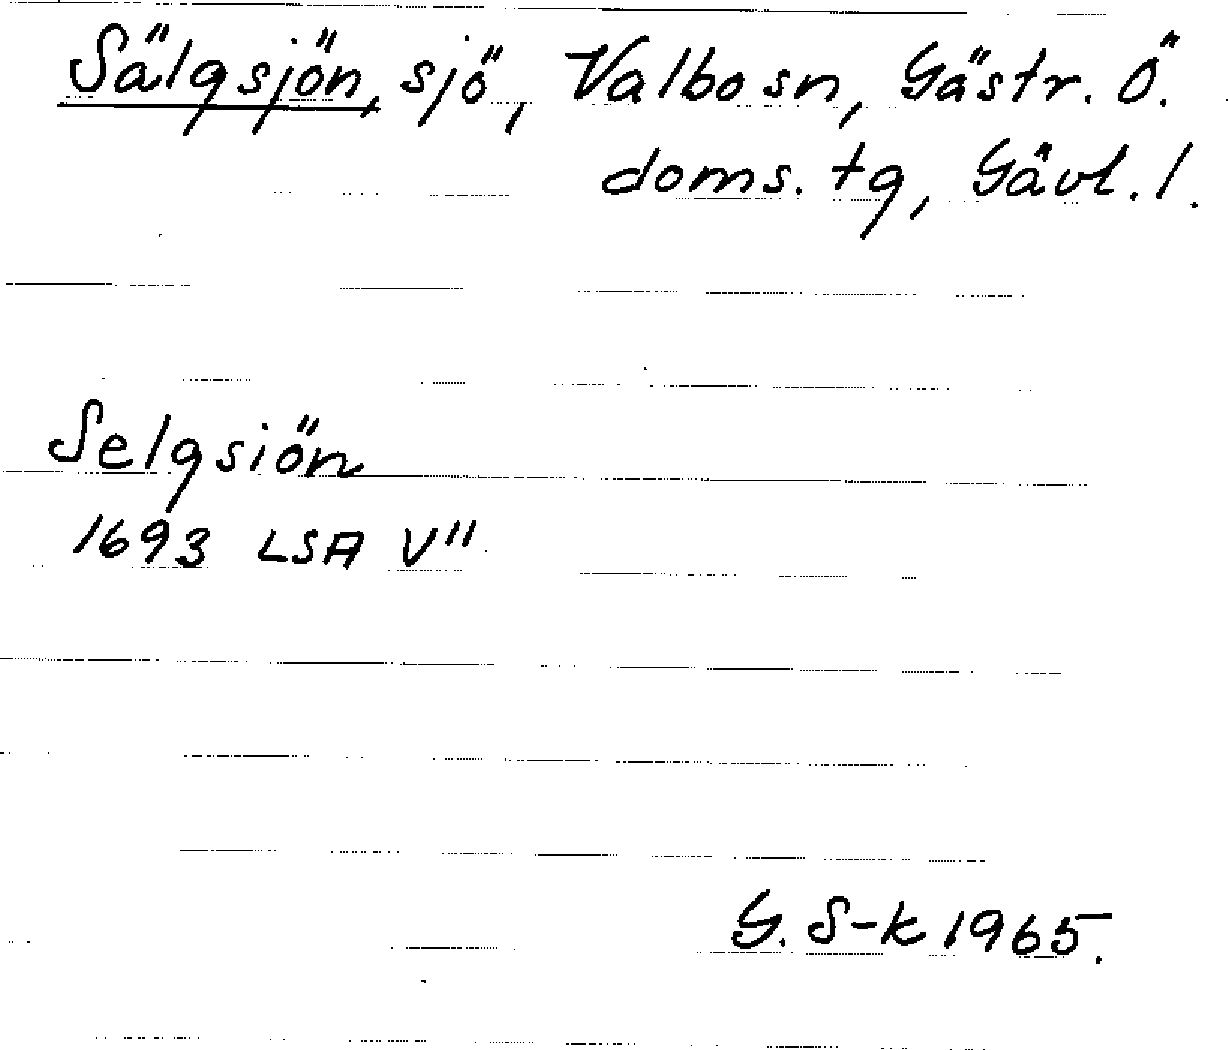 Sälgsjön, sjö, Valbo sn, Gästr. Ö.
doms. tg, Gävl. l.
Selgsiön
1693 LSA V"
G. S-k 1965.